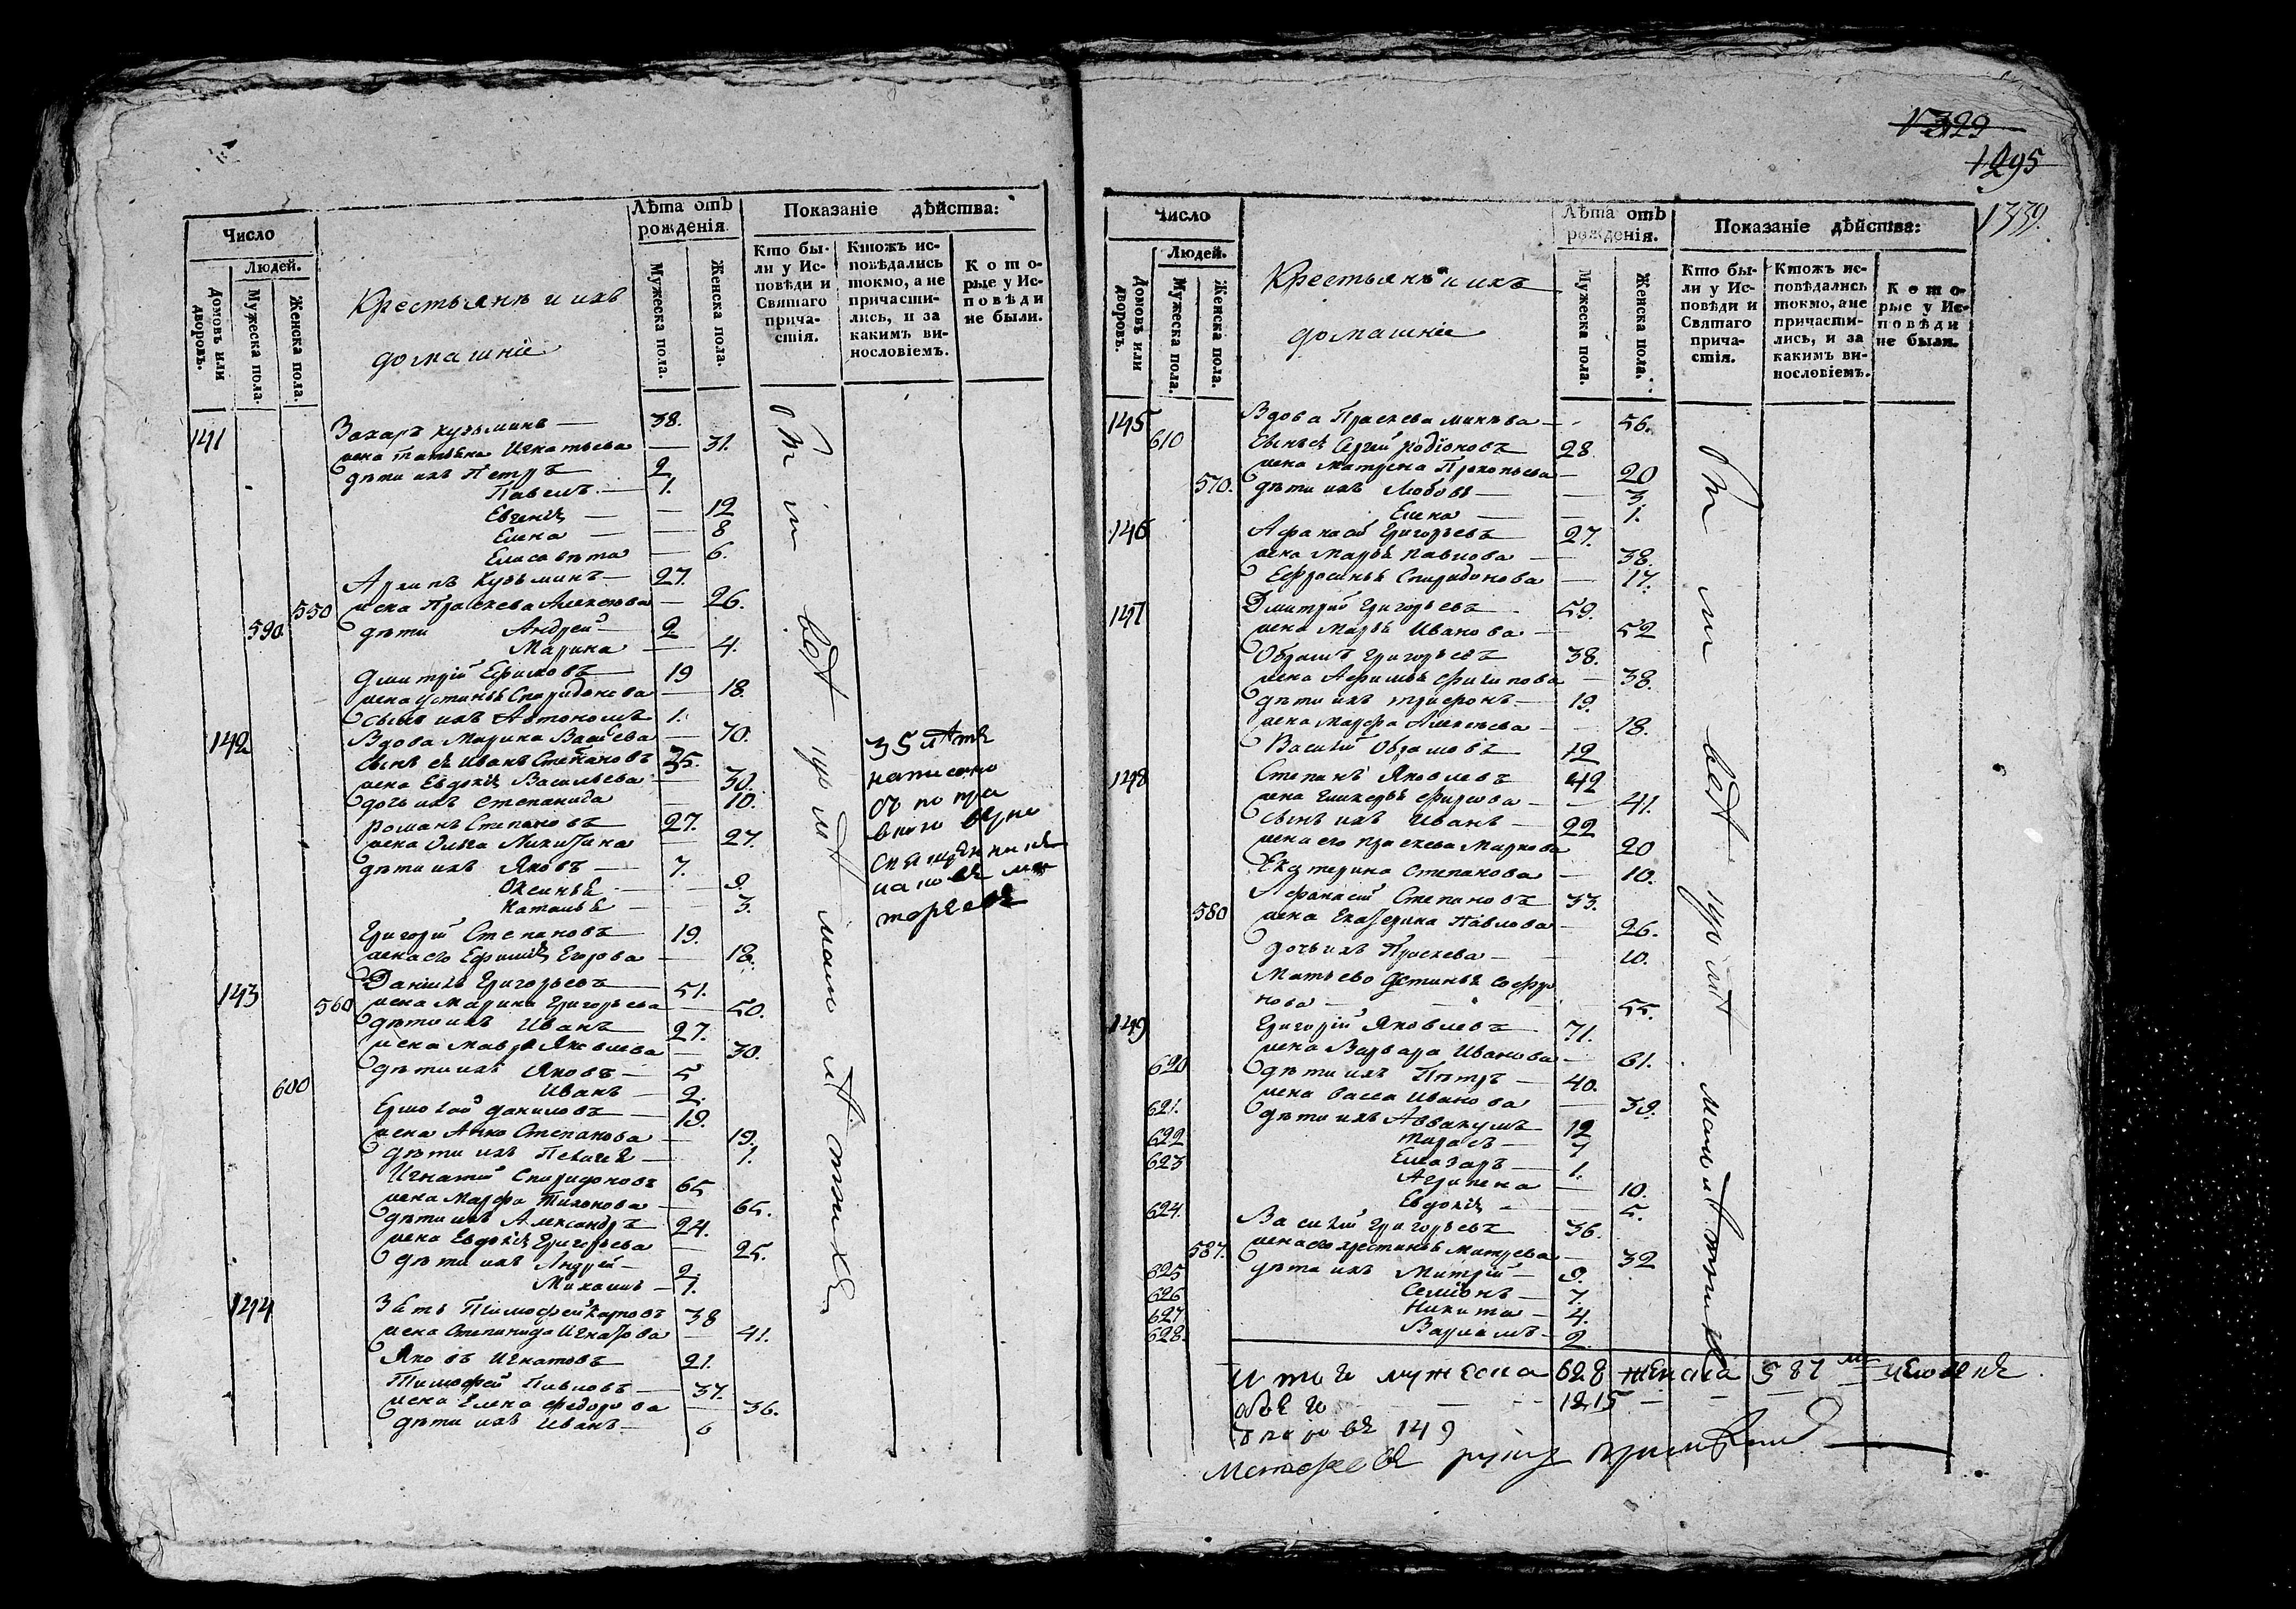 Число
Людей.
Домовъ или дворовъ.
Мужеска пола.
Женска пола.
Крестьянѣ и ихъ
домашніе
Лѣта отъ рожденія.
Мужеска пола.
Женска пола.
Показаніе дѣйства:
Кто бы-
ли у Ис-
повѣди и
Святаго
прича-
стія.
Ктожъ ис-
повѣдались
токмо, а не
причасти-
лись, и за
какимъ ви-
нословіемъ.
Кото-
рые у Ис-
повѣди
не были.
141 Захаръ Кузьминъ — 38.
жена Татьяна Игнатьева — 31.
дѣти ихъ Петръ 2
Павелъ — 1.
Евгенія — 12
Елена — 8
Елисавѣта — 6.
Архипъ Кузьминъ — 27.
550 жена Праскева Алексѣева — 26.
590 дѣти Андрей — 2
Марина — 4.
Дмитрій Ефимовъ 19
жена Устинья Спиридонова — 18
Сынъ ихъ Автономъ 1.
142 Вдова Марина — 70.
Сынъ ея Иванъ Степановъ 35.
жена Евдокія Васильева — 30.
дочь ихъ Степанида — 10.
Романъ Степановъ 27.
жена Ольга Никитина — 27
дѣти ихъ Яковъ — 7.
Оксинья — 9.
Наталья — 3.
Григорій Степановъ 19.
жена его Ефимія Егорова — 18.
143 Даніилъ Григорьевъ 51.
560 жена Марина Григорьева — 50.
дѣти ихъ Иванъ 27.
жена Мавра Яковлева — 30.
дѣти ихъ Яковъ — 5
600 Иванъ — 2.
Ермолай Даниловъ — 19.
жена Анна Степанова — 19.
дѣти ихъ Пелагея — 1.
Игнатій Спиридоновъ 65
жена Марфа Тихонова — 65.
дѣти ихъ Александръ 24.
жена Евдокія Григорьева — 25.
дѣти ихъ Андрей — 2.
Михаилъ — 1.
144 Зять Тимофей Карповъ 38
жена Степанида Игнатова — 41.
Яковъ Игнатовъ 21.
Тимофей Павловъ — 37.
жена Елена Федорова — 36.
дѣти ихъ Иванъ — 6
35 лѣтъ
написано
священникъ
1329
1295
1339.
Число
Людей.
Домовъ или дворовъ.
Мужеска пола.
Женска пола.
Крестьянѣ и ихъ
домашніе
Лѣта отъ рожденія.
Мужеска пола.
Женска пола.
Показаніе дѣйства:
Кто бы-
ли у Ис-
повѣди и
Святаго
прича-
стія.
Ктожъ ис-
повѣдались
токмо, а не
причасти-
лись, и за
какимъ ви-
нословіемъ.
Кото-
рые у Ис-
повѣди
не были.
145 Вдова Праскева — 56.
610 Сынъ ея Сергей Родіоновъ 28
жена Матрена Прокопьева — 20
570. дѣти ихъ Любовь — 3
Елена — 1.
146 Афанасій Григорьевъ 27.
жена Марья Павлова — 38.
Ефросинья Спиридонова — 17.
147 Дмитрій Григорьевъ 59.
жена Марья Иванова — 52
Обрамъ Григорьевъ 38.
жена Афимья Филипова — 38.
дѣти ихъ Трифонъ — 19.
жена Марфа Алексѣева — 18.
Василій Обрамовъ 12
148 Степанъ Яковлевъ 42
жена Гликерья Фирсова — 41.
Сынъ ихъ Иванъ — 22
жена его Праскева Маркова 20
Екатерина Степанова — 10.
Афанасій Степановъ 33.
580 жена Екатерина Павлова — 26.
дочь ихъ Праскева — 10.
Матьево Устинья Софро
нова — 55.
149 Григорій Яковлевъ 71.
жена Варвара Иванова — 61.
620 дѣти ихъ Пётръ — 40.
жена Васса Иванова — 39.
621. дѣти ихъ Аввакумъ 12
622 Тарасъ — 7
623 Елазаръ — 1.
Агрипена — 10.
Евдокія — 5.
624. Василій Григорьевъ 36.
587. жена его Хрестинья Митрева — 32
625 дѣти ихъ Митрій — 9.
626 Семіонъ — 7.
627 Никита — 4.
628. Варламъ — 2.
Итого мужеска 628 женска 587 человекъ
обоего — 1215 —
дворовъ 149
руку приложилъ